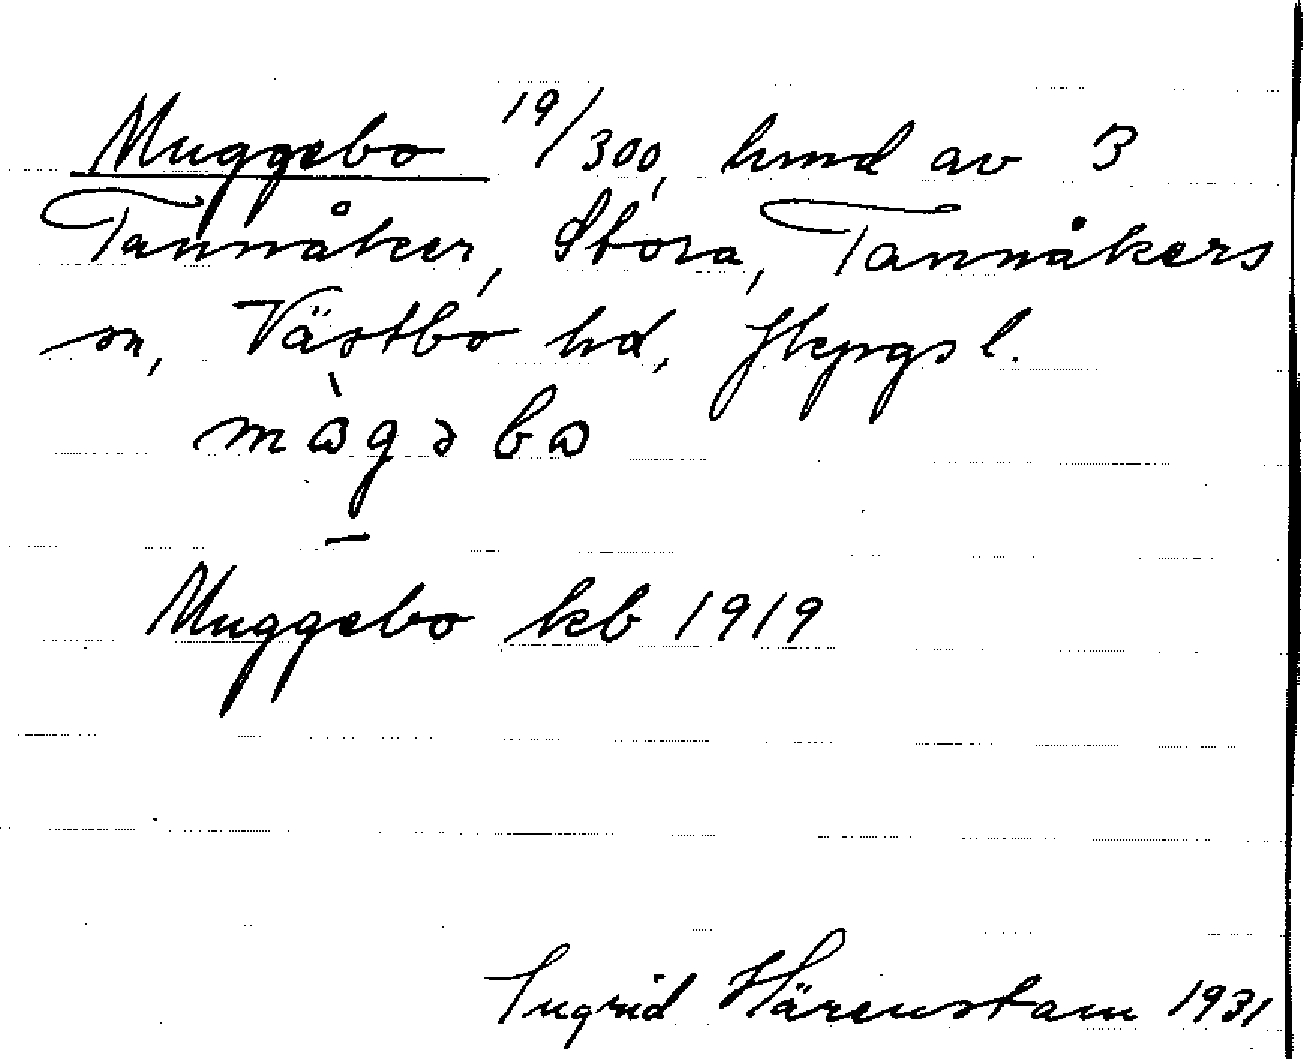 Muggebo 19/300, hmd av 3
Tannåker, Stora, Tannåkers
sn, Västbo hd, Jkpgs l.
Muggebo kb 1919
Ingrid Härenstam 1931